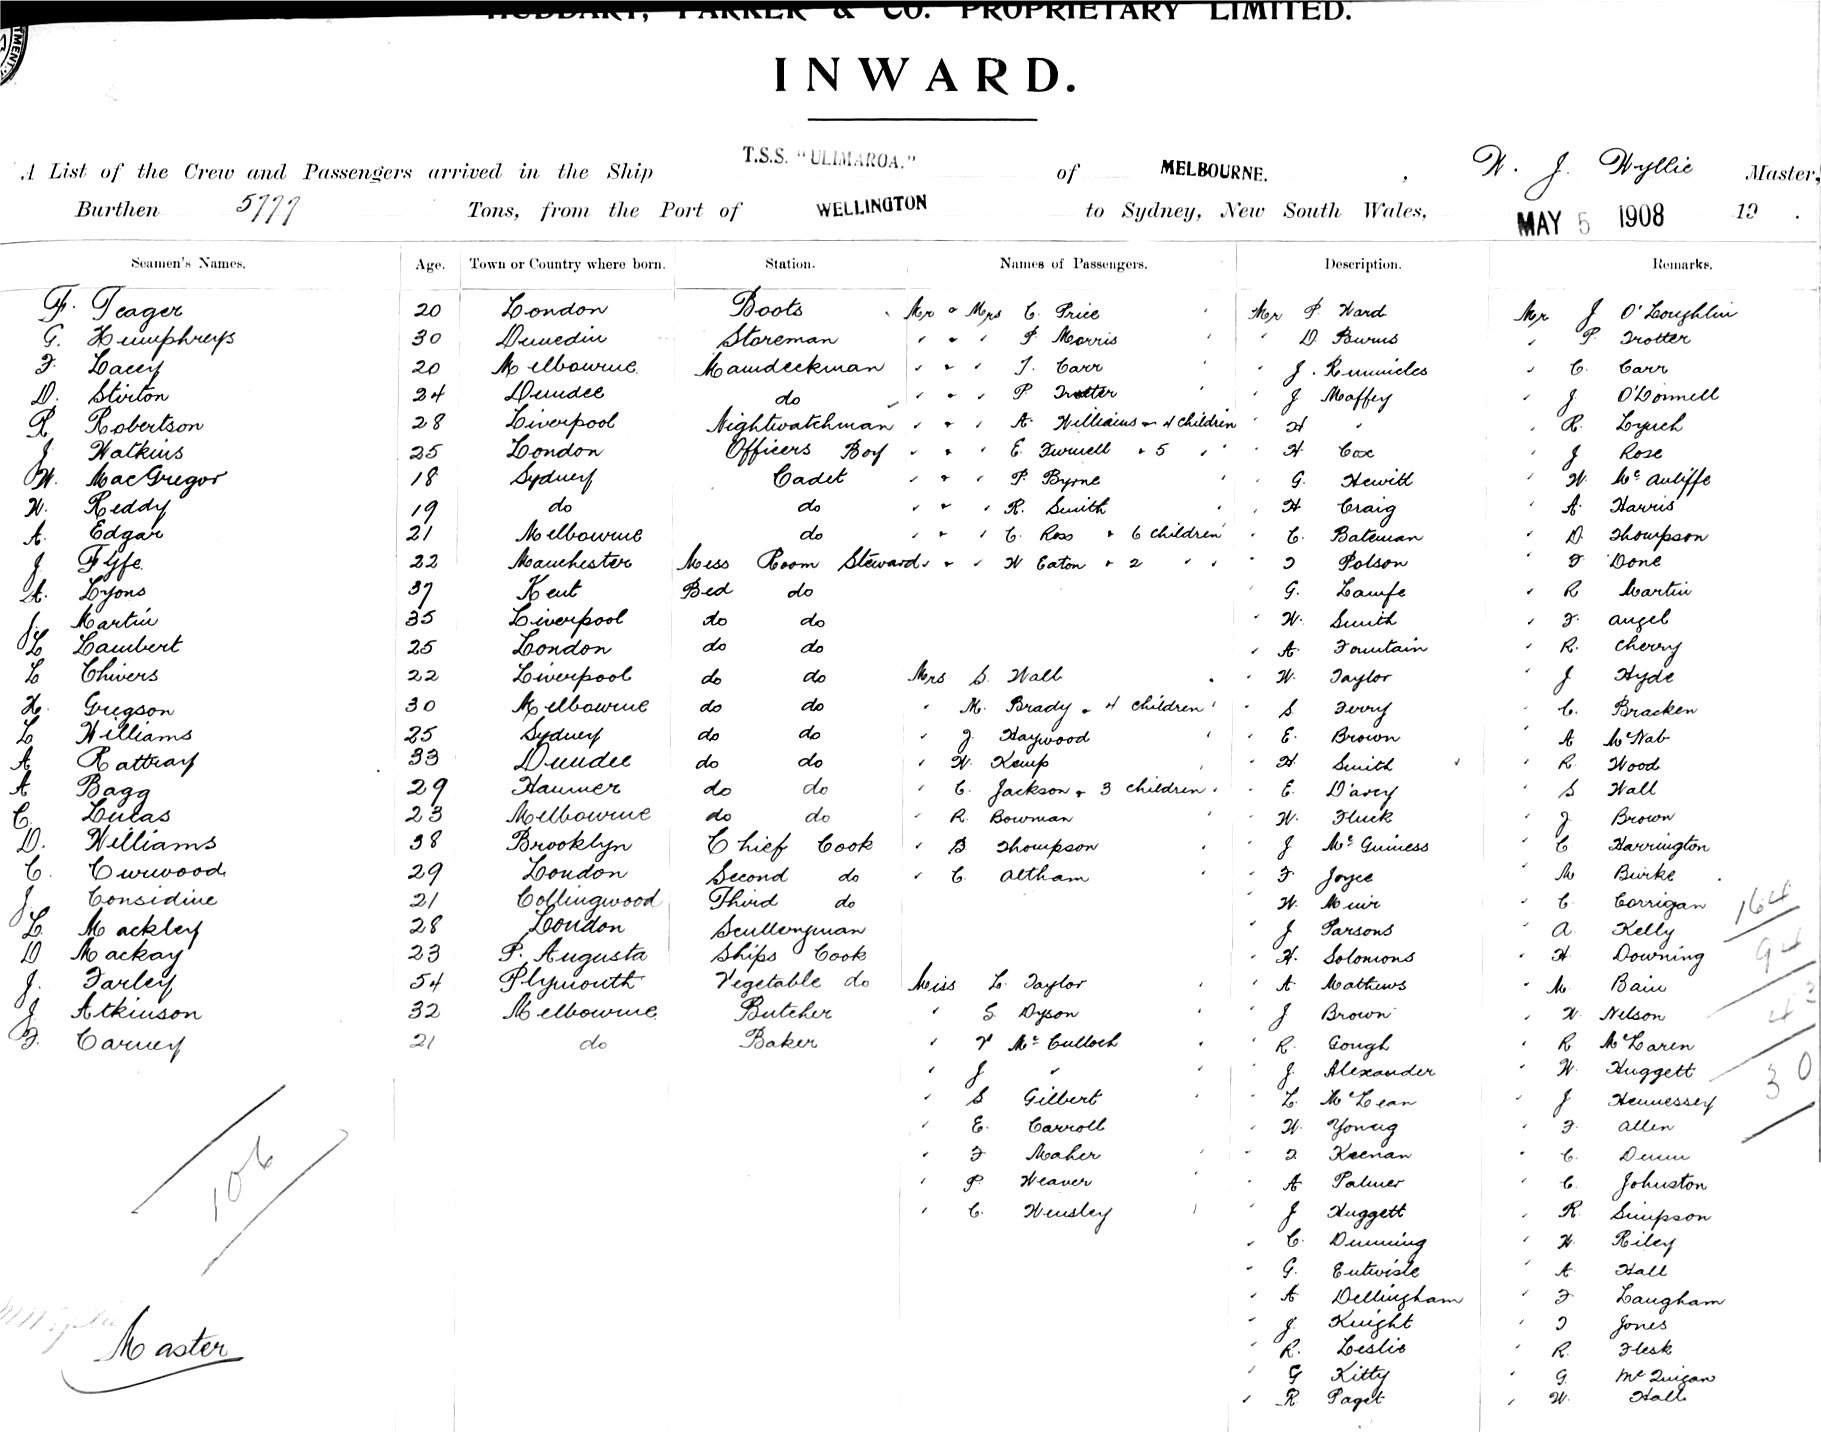 HUDDART, PARKER & CO. PROPRIETARY LIMITED.
INWARD.
A List of the Crew and Passengers arrived in the Ship T.S.S. "ULIMAROA." of MELBOURNE. , W. J. Wyllie Master,
Burthen 5777 Tons, from the Port of WELLINGTON to Sydney, New South Wales, MAY 5 1908 19 .
Seamen's Names. Age. Town or Country where born. Station. Names of Passengers. Description. Remarks.
F. Teager 20 London Boots Mr & Mrs C. Price Mr P. Ward Mr J O'Loughlin
G. Humphreys 30 Dunedin Storeman " & " P. Morris " D. Burns " P. Trotter
F. Lacey 20 Melbourne Lampdeckman " & " J. Carr " J. Runnicles " C. Carr
D. Stirton 24 Dundee do " & " P. Trotter " J Maffey " J O'Donnell
R Robertson 28 Liverpool Nightwatchman " & " A. Williams & 4 children " H " " R. Lynch
J Watkins 25 London Officers Boy " & " E. Furnell & 5 " " H. Cox " J Rose
W. MacGregor 18 Sydney Cadet " & " P. Byrne " G. Hewitt " W. McAuliffe
W. Reddy 19 do do " & " R. Smith " H Craig " A. Harris
A. Edgar 21 Melbourne do " & " C. Ross & 6 children " C. Bateman " D. Thompson
J Fyfe 22 Manchester Mess Room Steward " & " W Eaton & 2 " " J Polson " F Done
A. Lyons 37 Kent Bed do " G. Lampe " R Martin
J. Martin 35 Liverpool do do " W. Smith " F. Angel
L Lambert 25 London do do " A Fountain " R. Cherry
L Chivers 22 Liverpool do do Mrs S. Wall " W. Taylor " J Hyde
H. Gregson 30 Melbourne do do " M. Brady & 4 children " S Terry " C. Bracken
L Williams 25 Sydney do do " J Haywood " E. Brown " A McNab
A Rattray 33 Dundee do do " W. Kemp " H Smith " R. Wood
A Bagg 29 do do " C. Jackson & 3 children " E. D'Arcy " S Wall
C. Lucas 23 Melbourne do do " R. Bowman " W. Fluck " J Brown
D. Williams 38 Brooklyn Chief Cook " B Thompson " J McGuiness " C Harrington
C. Curwood 29 London Second do " C. Altham " F Joyce " M Burke
J Considine 21 Collingwood Third do " W. Muir " C. Corrigan 164
L Mackley 28 London Sculleryman " J Parsons " A. Kelly
D Mackay 23 P. Augusta Ships Cook " H. Solomons " H Downing 94
J. Farley 54 Plymouth Vegetable do Miss L. Taylor " A Mathews " M. Bain
J Atkinson 32 Melbourne Butcher " G. Dyson " J Brown " W. Nelson 43
F. Carney 21 do Baker " V McCulloch " R. Gough " R McLaren
" J " " J. Alexander " W. Huggett 30
" S Gilbert " L. McLean " J Hennessey
" E. Carroll " W. Young " F. Allen
" F Maher " J Keenan " C. Dunn
" P. Weaver " A Palmer " C. Johnston
106 " C. Hensley " J Huggett " R. Simpson
" C. Dunning " W. Riley
" G. Entwisle " A. Hall
" A Dellingham " F Langham
" J. Knight " J Jones
Master " R. Leslie " R. Flesk
" G Kitty " G. McQuigan
" R Paget " W. Hall